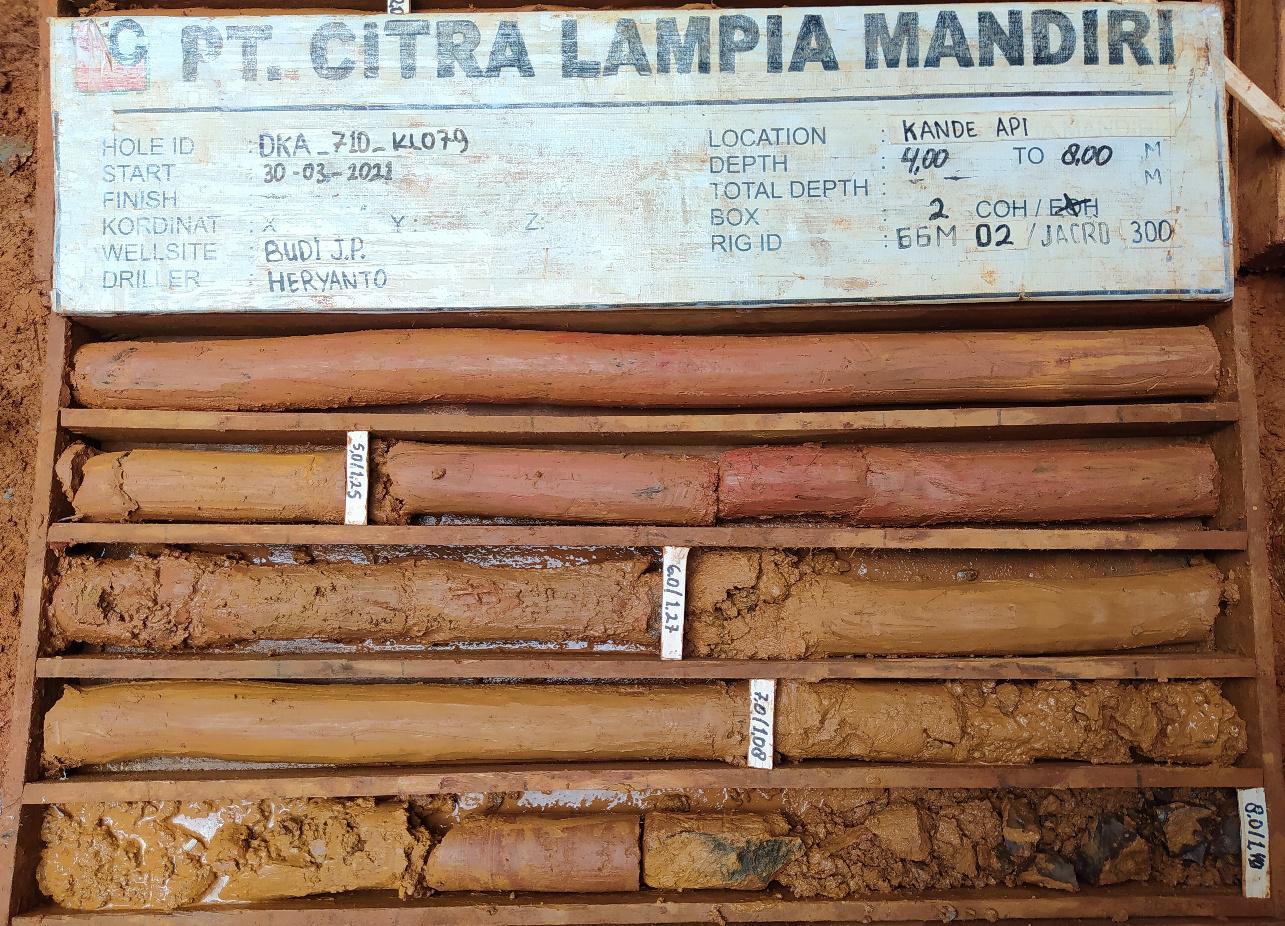 PT. CITRA LAMPIA MANDIRI
HOLE ID : DKA_710_KL079
START : 30-03-2021
FINISH :
KORDINAT : X Y: Z:
WELLSITE : BUDI J.P.
DRILLER : HERYANTO
LOCATION : KANDE API
DEPTH : 4,00 TO 8.00 M
TOTAL DEPTH : M
BOX : 2 COH / EOH
RIG ID : 66M 02 / JACRO 300
5,0/1.25
6.0/1.27
7.0/1.08
8.0/1.40